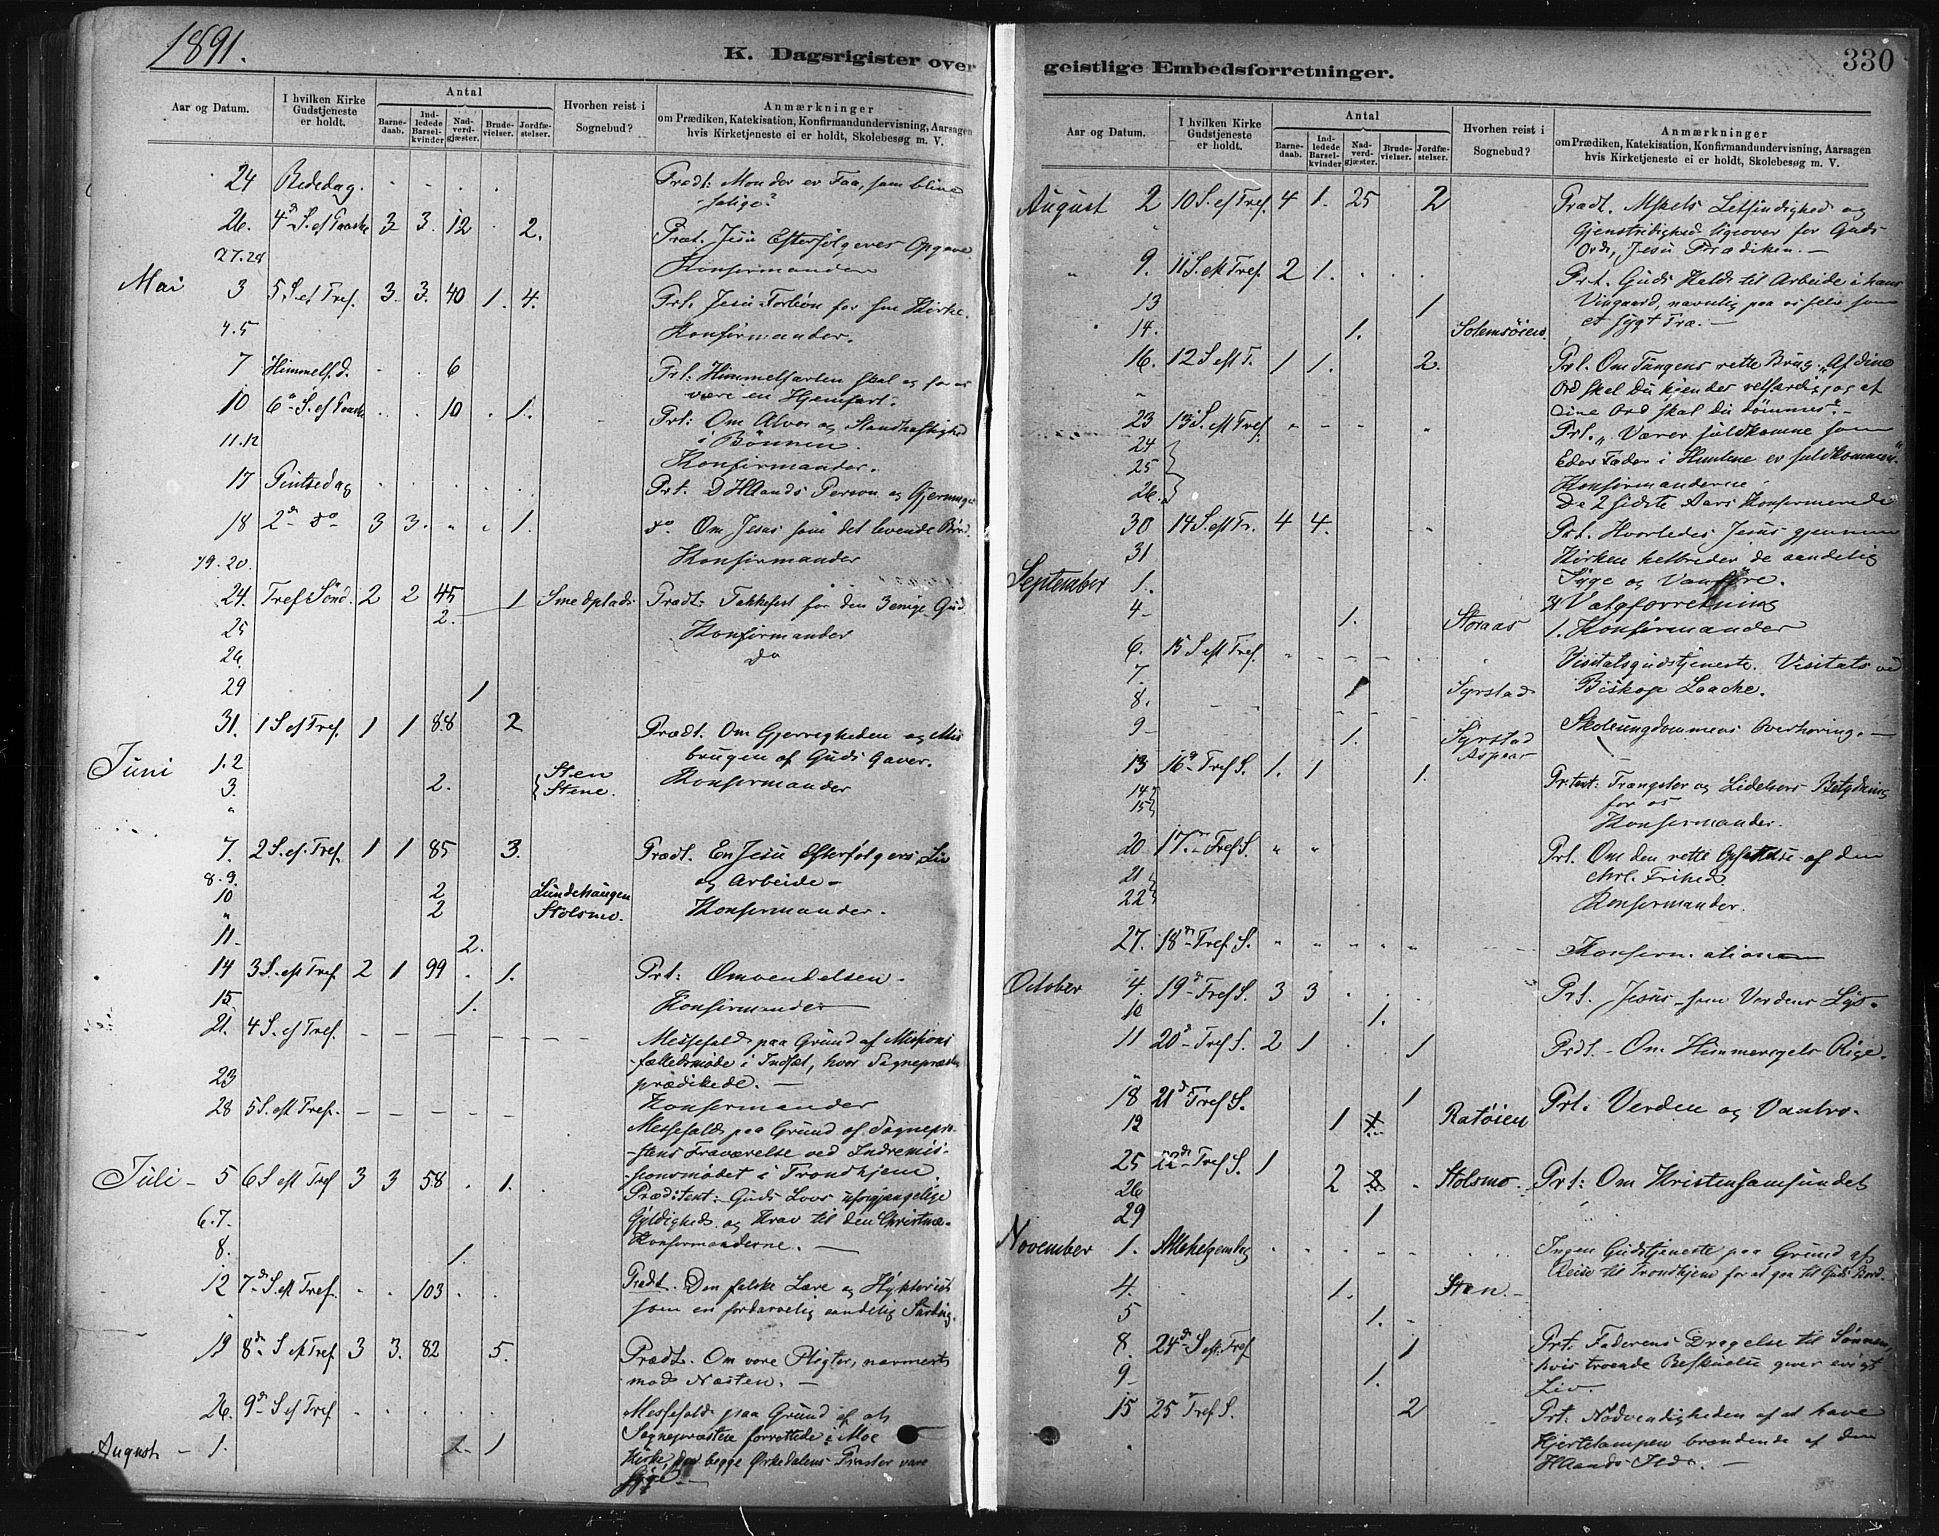 1891.
K. Dagsrigister over
Aar og Datum. I hvilken Kirke Gudstjeneste er holdt. Antal Barnedaab. Indledede Barselkvinder Nadverdgjæster. Brudevielser. Jordfæstelser. Hvorhen reist i Sognebud? Anmærkninger om Prædiken, Katekisation, Konfirmandundervisning, Aarsagen hvis Kirketjeneste ei er holdt, Skolebesøg m. V.
24 Bededag. Prædt: Mon der er Faa, som blive
salige?
26. 4d S. ef Paaske 3 3. 12 2. Præt. Jesu Efterfølgeres Opgave
27.28 Konfirmandere
Mai 3 5 S. ef Tref. 3. 3. 40 1. 4. Prt. Jesu Forbøn for sin Kirke.
4.5 Konfirmander.
7 Himmelf.d. 6 Prt. Himmelfarten skal og for os
være en Hjemfart.
10 6te S. ef Paaske 10 1. Prt: Om Alvor og Standhaftighed
i Bønnen.
11.12 Konfirmander.
17 Pintsedag Prt. D HAands Person og Gjerninger
18 2den do 3 3. 1. do. Om Jesus som det levende Brød.
19.20. Konfirmander
24. Tref. Sønd. 2 2 45 1 Smedplads Prædt: Takkefest for den 3enige Gud
2.
25 Konfirmander
26. do
29 1
31. 1 S ef Tref. 1 1 88 2 Prædt. Om Gjerrigheden og Mis
brugen af Guds Gaver.
Juni 1.2 Konfirmander
3. 2. Sten
" Stene.
7. 2 S. ef. Tref. 1 1 85 3. Prædt. En Jesu Efterfølgers Liv
og Arbeide -
8.9. Konfirmander.
10 2 Lundehaugen
" 2 Stølsmo.
11 2.
14 3 S. eft Tref. 2 1 99 1. Prt: Omvendelsen -
15 1. Konfirmander
21. 4 S. ef Tref. Messefald paa Grund af Missions
-fællesmøde i Indset, hvor Sognepræsten
prædikede. -
23 Konfirmander
28 5 S. eft Tref. Messefald paa Grund af Sognepræ-
-stens Fraværelse ved Indremis-
-sionsmødet i Trondhjem
Juli - 5 6 S eft Tref 3 3 58 1. Præd: tent: Guds Lovs uforgjængelige
Gyldighed og Krav til den Christne.
6.7. Konfirmanderne. -
8. 1.
12 7de S. eft Tref. 103 Prædt. Den falske Lære og Hykleriet
som en fordærvelig aandelig Surdeig.
19 8de S eft Tref 3 3. 82 5. Prædt. Om vore Pligter, nærmest
mod Næsten. -
26. 9de S ef Tref Messefald paa Grund af at
Sognepræsten forrettede i Moe
August - 1. 1 Kirke, da begge Ørkedalens Præster vare
syge -
geistlige Embedsforretninger.
330
Aar og Datum. I hvilken Kirke Gudstjeneste er holdt. Antal Barnedaab. Indledede Barselkvinder Nadverdgjæster. Brudevielser. Jordfæstelser. Hvorhen reist i Sognebud? Anmærkninger om Prædiken, Katekisation, Konfirmandundervisning, Aarsagen hvis Kirketjeneste ei er holdt, Skolebesøg m. V.
August 2 10 S. ef Tref. 4 1. 25 2 Prædt. Letsindighed og
Gjenstridighed ligeover for Guds
Ord, Jesu Prædiken. -
" 9. 11 S. eft Tref. 2 1. Prt. Guds Kald til Arbeide i hans
Viingaard, navnlig paa os selv som
et sygt Træ. -
13 1
14. 1. Solemsøien
16. 12 S. eft T. 1 1. 2. Prt. Om Tungens rette Brug, Af dine
Ord skal Du kjendes retfærdig, og af
Dine Ord skal Du dømmes". -
23 13 S. eft Tref. Prt. "Værer fuldkomne som
Eders Fader i Himlene er fuldkommen".
24 Konfirmanderne
25
26. De 2 sidste Aars Konfirmerede
30 14 S. eft Tr. 4 4. Prt. Hvorledes Jesus gjennem
Kirken helbreder de aandelig
Syge og Vanføre.
31 31 Valgforretning
September 1. 1. Konfirmander
4 - 1. Storaas
6. 15 S eft Tref. Visitatsgudstjeneste. Visitats ved
Biskop Laache.
7.
8. 1 Syrstad
9 - 1. Syrstad
Aspaas
Skoleungdommens Overhøring. -
13 16de Tref S. 1. 1 1. Pr: tent: Trængsler og Lidelsers Betydning
for os
14 Konfirmander.
15
20 17de Tref S. Prt. Om den rette Opfattelse af den
chrl. Frihed
21 Konfirmander.
22
27. 18de Tref S. Konfirmationen
October 4. 19de Tref S. 3 3 Prt. Jesus som Verdens Lys.
10 1.
11 20de Tref S. 2 1 1 Prdt. - Om Himmerigets Rige.
18 21de Tref S. 1 Prt: Verden og Vantro.
19 1 Ratøien
25 22de Tref S. 1 Prt: Om Kristensamfundet
26 2 Stølsmo
29 1
November 1. Allehelgensdag Ingen Gudstjeneste paa Grund af
Reise til Trondhjem for at gaa til Guds Bord.
4. 1. Sten
5 1.
8. 24de S eft. Tref 1 Prt: Faderens Dragelse til Sønnen,
hvis troende Beskuelse giver evigt
Liv.
9 - 1.
15 25 Tref S. 2 Prt. Nødvendigheden af at have
Hjertelampen brændende af den
HAands Ild. -